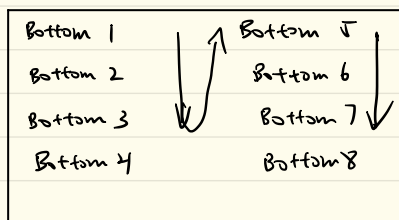 Bottom 1
Bottom 2
Bottom 3
Bottom 4
Bottom 5
Bottom 6
Bottom 7
Bottom 8